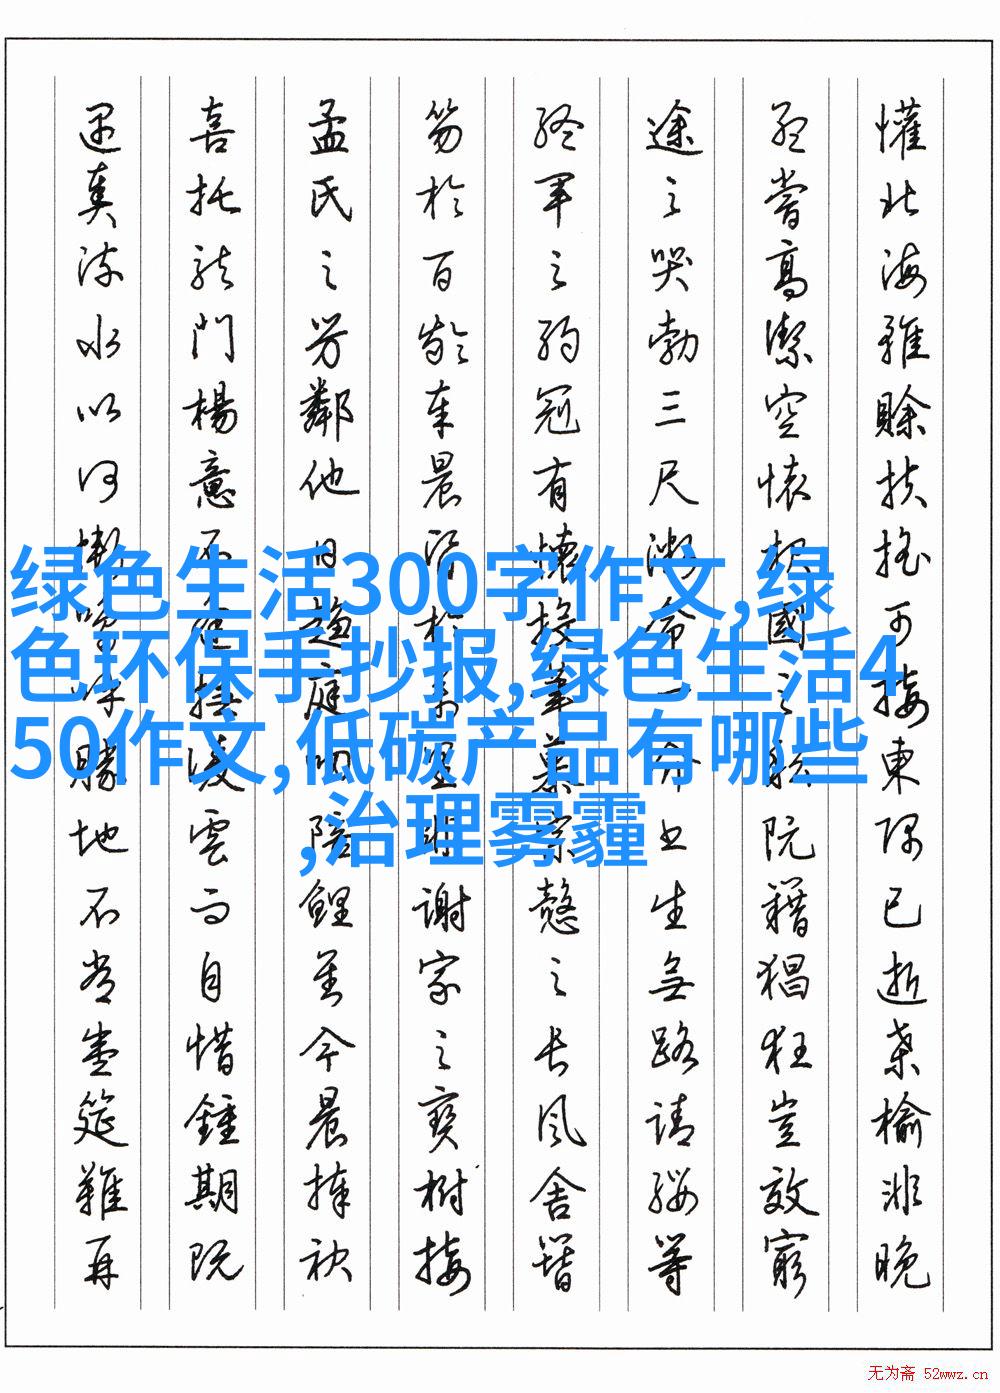 懽北海雖賒扶搖可接東隅已逝桑榆非晚
孟嘗高潔空懷報國之阮籍猖狂豈效窮
途之哭勃三尺微命一介書生無路請纓等
終軍之弱冠有懷投筆慕宗慤之長風舍簪
笏於百齡奉晨昏於萬里非謝家之寶樹接
孟氏之芳鄰他日趨庭叨陪鯉對今晨捧袂
喜托龍門楊意不逢撫凌雲而自惜鍾期既
遇奏流水以何慚嗚呼勝地不常盛筵難再
绿色生活300字作文,绿
色环保手抄报,绿色生活4
50作文,低碳产品有哪些
,治理雾霾
无为斋 52wwz.cn